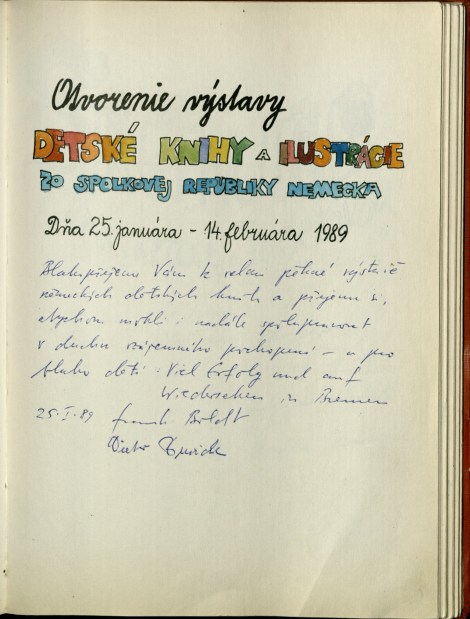 Otvorenie výstavy
DETSKÉ KNIHY A ILUSTRÁCIE
ZO SPOLKOVEJ REPUBLIKY NEMECKA
Dňa 25. januára - 14. februára 1989
Blahopřejeme Vám k velmi pěkné výstavě
německých dětských knih a přejeme si,
abychom mohli i nadále spolupracovat
v duchu vzájemného pochopení - a pro
blaho dětí. Viel Erfolg und auf
Wiedersehen in Bremen
25.I.89 Frank Boldt